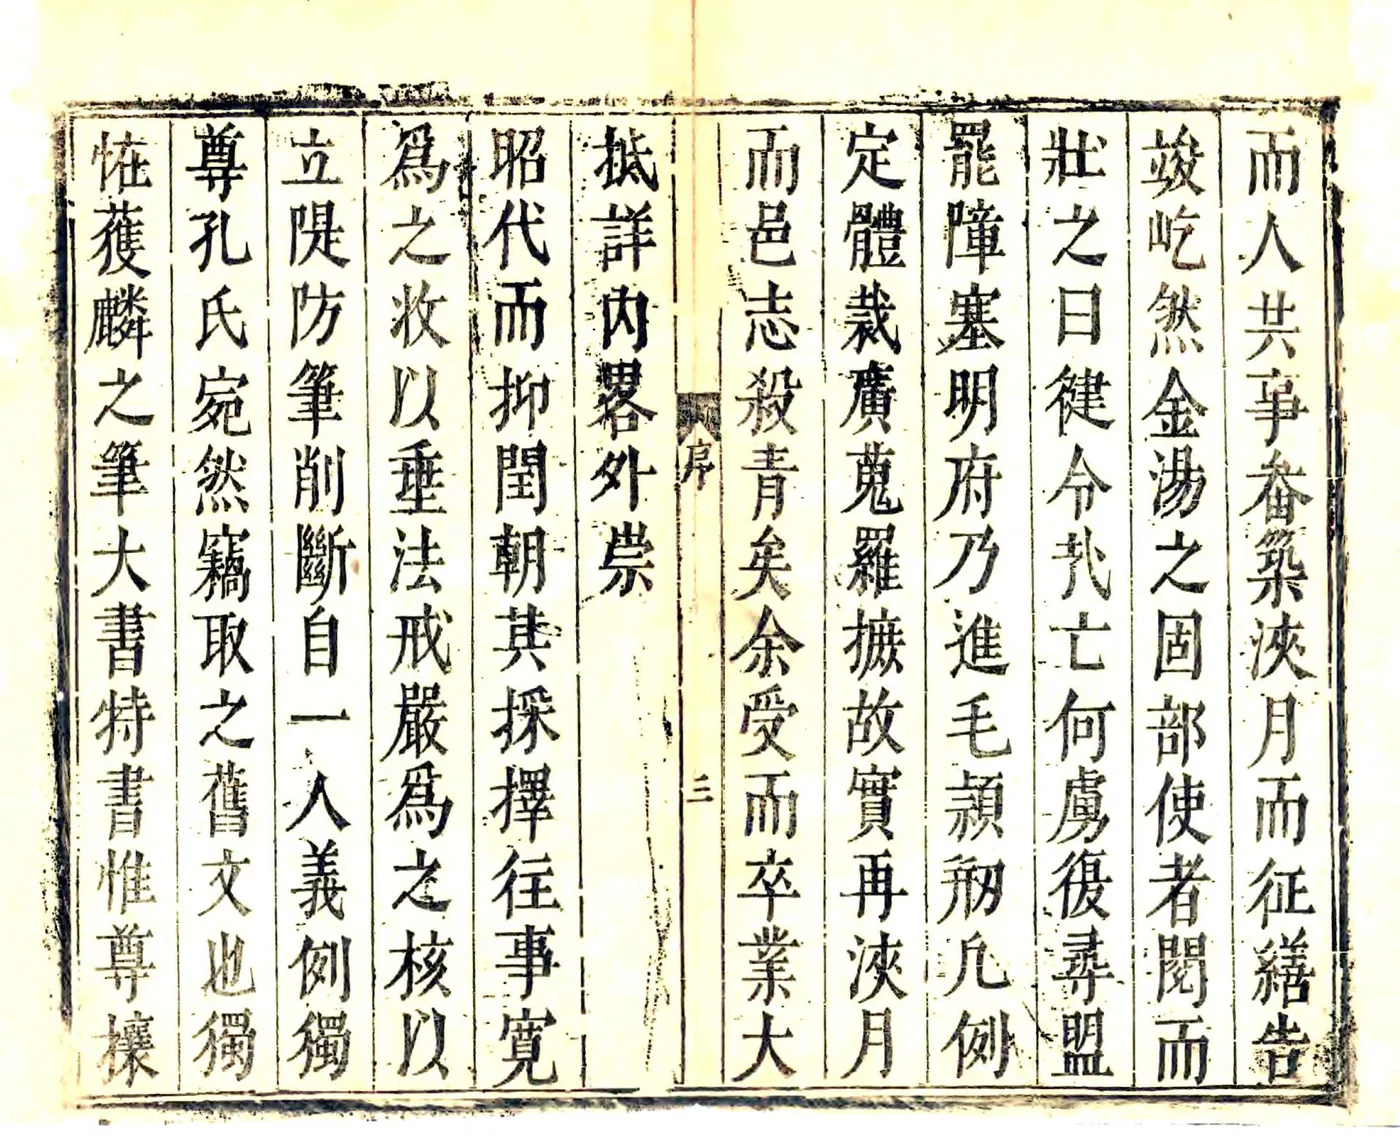 而人共事畚築浹月而征繕告
竣屹然金湯之固部使者閱而
壯之曰健令㢤亡何虜復尋盟
罷障塞明府乃進毛潁剏凡例
定體裁廣蒐羅摭故實再浹月
而邑志殺青矣余受而卒業大
序
三
抵詳內畧外崇
昭代而抑閏朝其採擇往事寬
爲之收以垂法戒嚴爲之核以
立隄防筆削斷自一人義例獨
尊孔氏宛然竊取之舊文也獨
恠蒦麟之筆大書特書惟尊攘